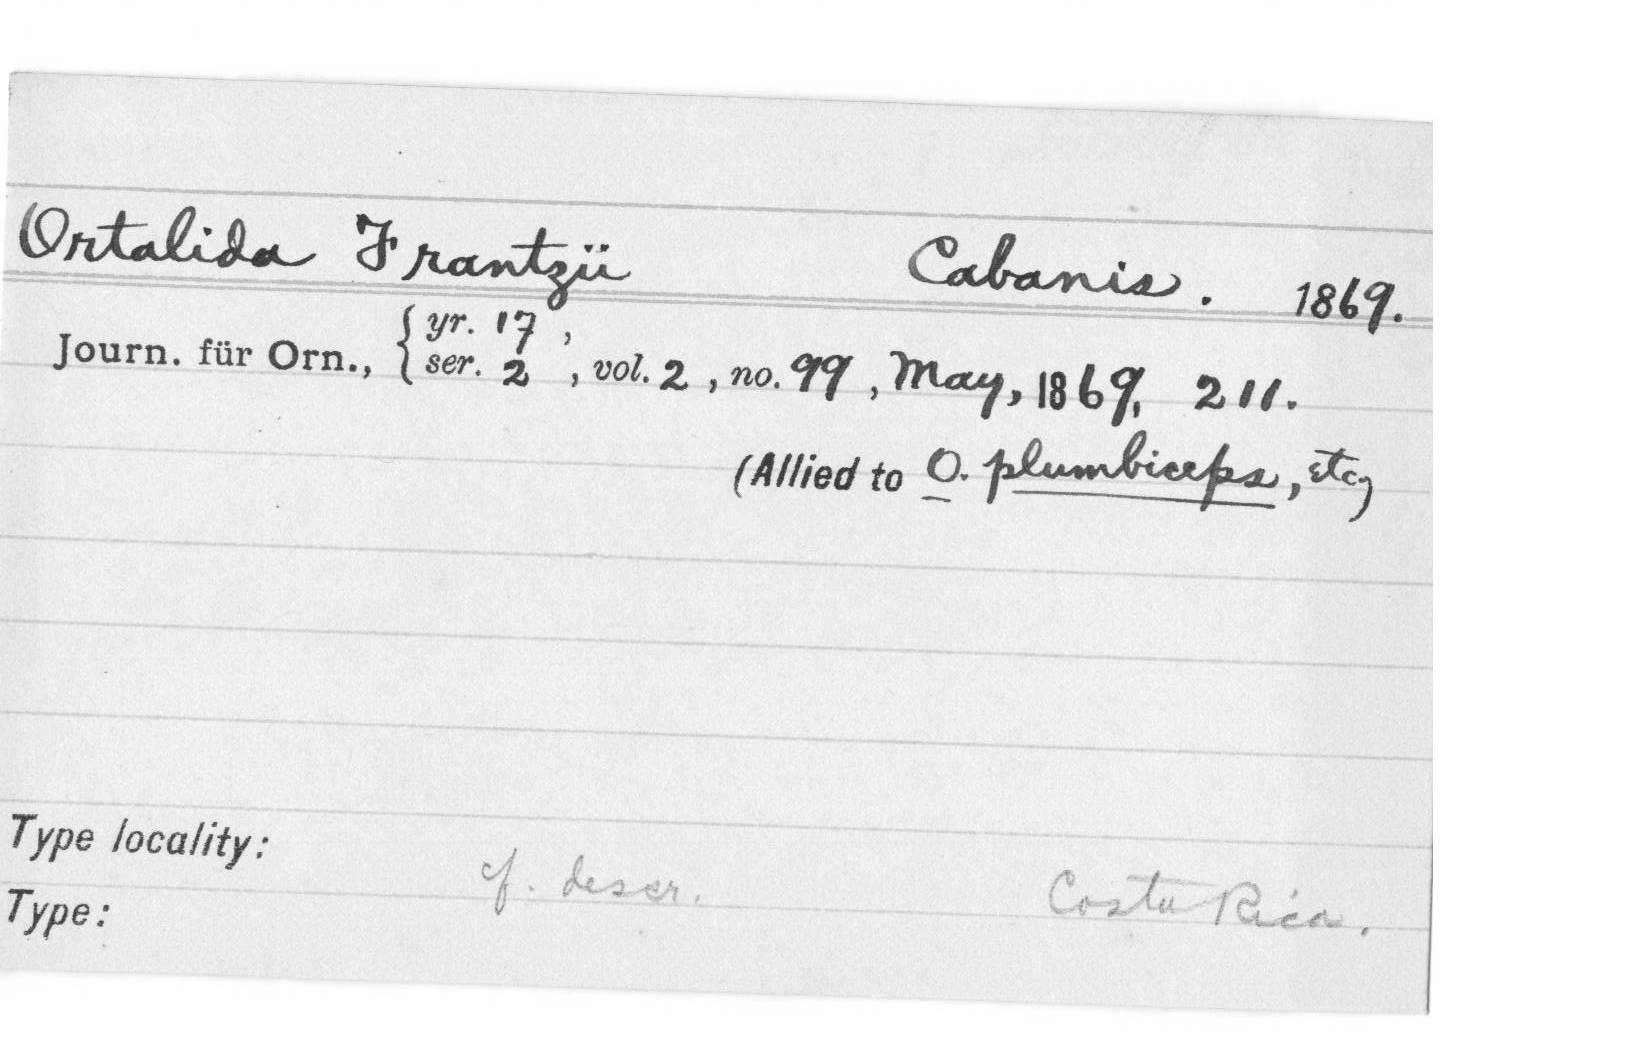 Ortalida Frantzii Cabanis. 1869.
Journ. für Orn., { yr. 17 ,
ser. 2 , vol. 2 , no. 99 , May, 1869, 211.
(Allied to O. plumbiceps, etc)
Type locality:
cf. descr. Costa Rica.
Type: